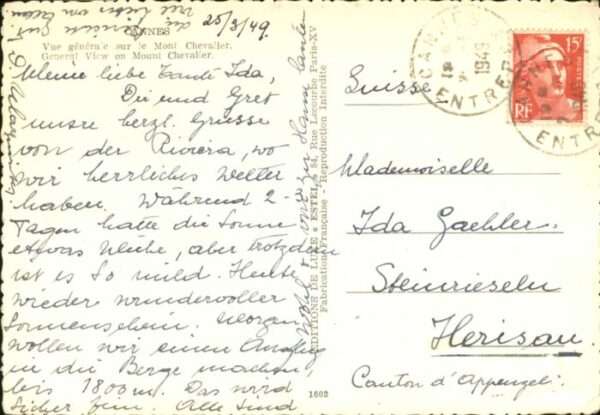 25/3/49
CANNES
Vue générale sur le Mont Chevalier.
General View on Mount Chevalier.
Meine liebe Tante Ida,
Dir und Gret
unsre herzl. Grüsse
von der Riviera, wo
wir herrliches Wetter
haben. Während 2
Tagen hatte die Sonne
etwas Mühe, aber trotzdem
ist es so mild. Heute
wieder wundervoller
Sonnenschein. Morgen
wollen wir einen Ausflug
in die Berge machen,
bis 1800 m. Das wird
sicher fein. Alle sind
wohl
EDITIONS DE LUXE « ESTEL » 84, Rue Lecourbe Paris-XV
Fabrication Française - Reproduction Interdite
1602
CANNES
1949
ENTREP
15
RF
ENTREP
Suisse
Mademoiselle
Ida Gaehler
Steinrieseln
Herisau
Canton d'Appenzel